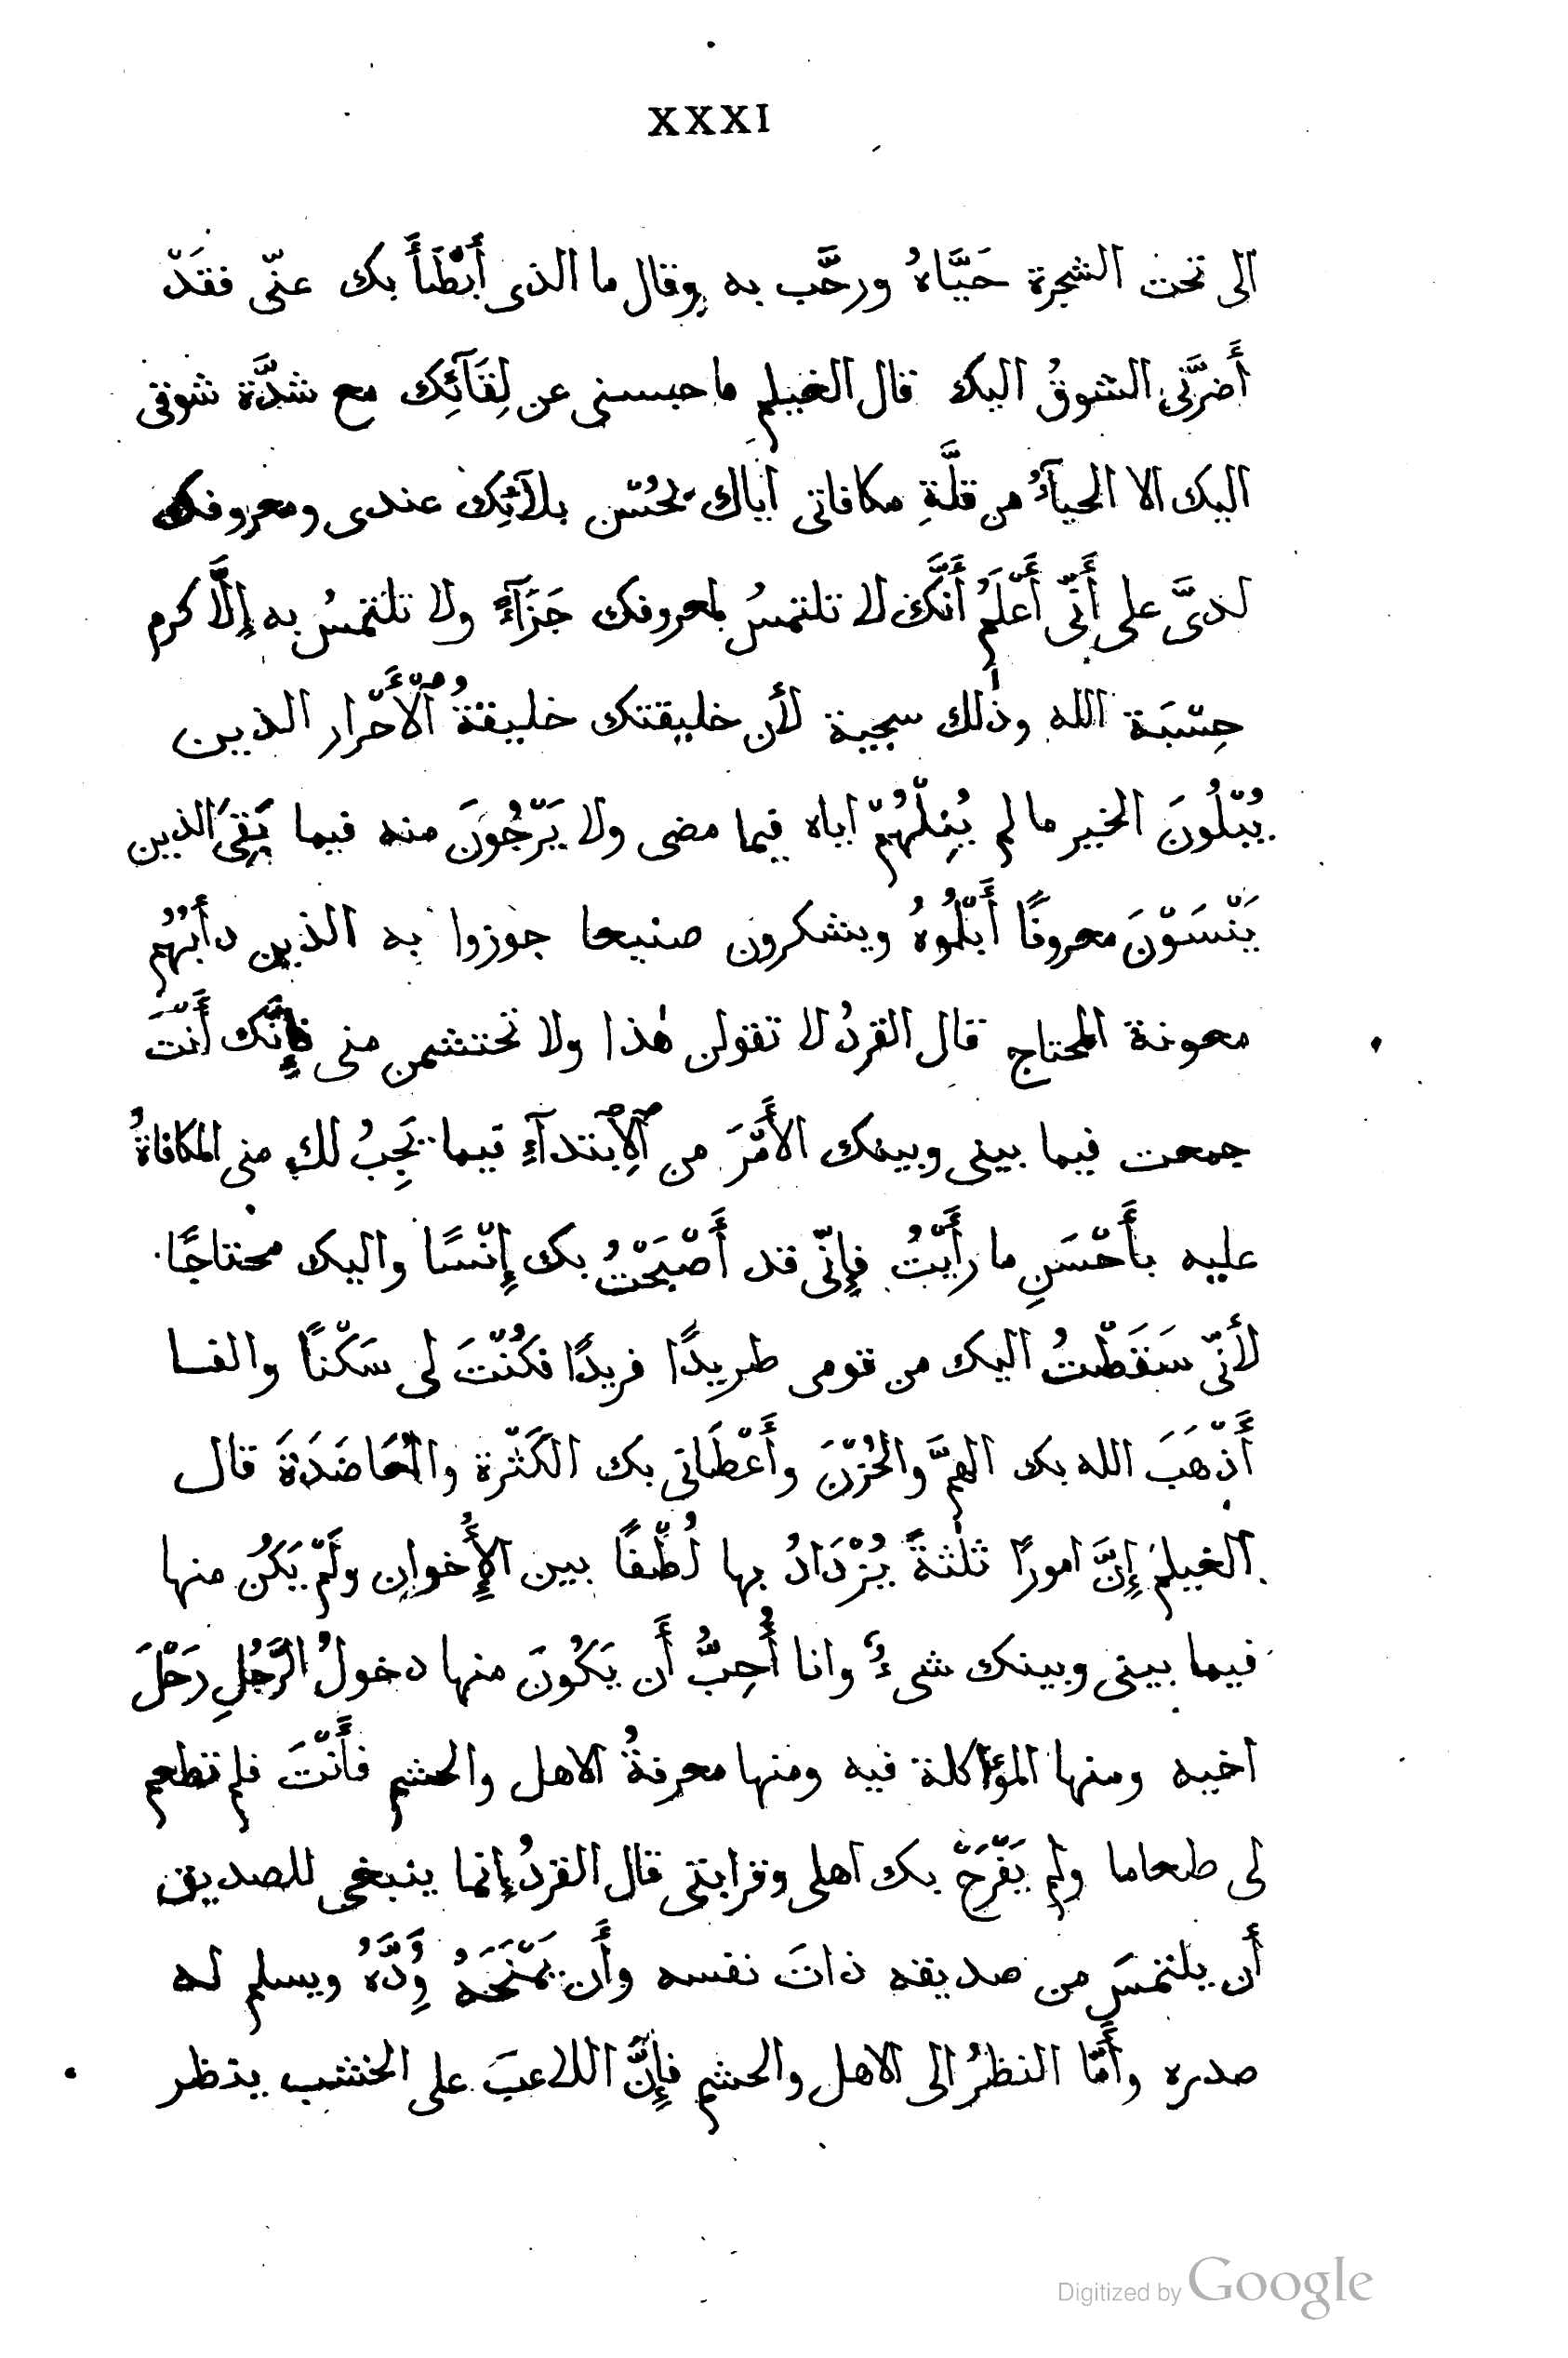 XXXI
الى تحت الشجرة حَيَّاهُ ورحَّب به وقال ما الذى أَبْطَأَ بك عنّى فقَدْ
أَضرَّنى الشوقُ اليك قال الغيلم ما حبسنى عن لِقَآئِك مع شدَّة شوقى
اليك الا الحيآءُ من قلَّةِ مكافاتى اياك لحُسْن بلآئِك عندى ومعروفك
لدىَّ على أَنّى أَعْلَمُ أَنَّك لا تلتمسُ لمعروفك جَزَآءً ولا تلتمسُ به إِلَّا كرم
حِسْبَة الله وذٰلك سجية لأن خليقتك خليقةُ ٱلْأَحْرار الذين
يُبْلُونَ الخير ما لم يُنِلْهُمْ اياه فيما مضى ولا يَرْجُونَ منه فيما بَقِىَ الذين
يَنْسَوْنَ معروفًا أَبْلُوهُ ويشكرون صنيعا جوزوا به الذين دأبُهُم
معونة المحتاج قال القردُ لا تقولن هٰذا ولا تحتشمن منى فإِنَّك أَنْتَ
جمعت فيما بينى وبينك الأَمْرَ من ٱلِٱبْتدآءِ فيما يَجِبُ لك منى المكافاةُ
عليه بأَحْسَنِ ما رأَيْتُ فإِنّى قد أَصْبَحْتُ بك إِنْسًا واليك محتاجًا
لأنّى سَقَطْتُ اليك من قومى طريدًا فريدًا فكُنْتَ لى سَكْنًا والفا
أَذْهَبَ الله بك الهمَّ والحُزْنَ وأَعْطَانى بك الكَثْرة والمُعَاضَدَةَ قال
الغيلمُ إِنَّ امورًا ثلٰثةً يُزْدَادُ بها لُطْفًا بين الإِخوان ولَمْ يَكُن منها
فيما بينى وبينك شىءٌ وانا أُحِبُّ أَن يَكُونَ منها دخولُ الرَّجُلِ رَحْلَ
اخيه ومنها المؤاكلة فيه ومنها معرفةُ الاهل والحشم فأَنْتَ فلم تطعم
لى طعاما ولم يَفْرَحْ بك اهلى وقرابتى قال القردُ إنما ينبغى للصديق
أن يلتمسَ من صديقه ذاتَ نفسه وأَن يَمْنَحَهُ وُدَّهُ ويسلم له
صدره وأَمّا النظرُ الى الاهل والحشم فإِنَّ اللاعبَ على الخشب ينظر
Digitized by Google